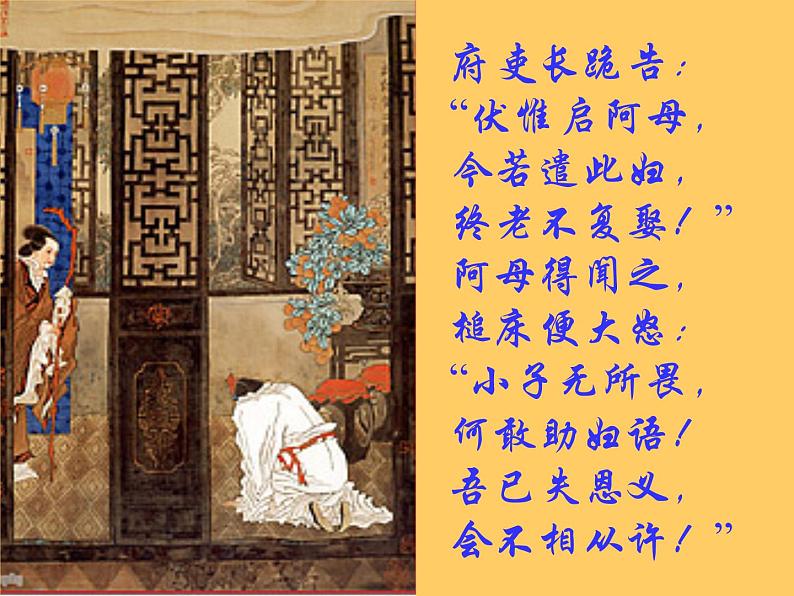 府吏长跪告：
“伏惟启阿母，
今若遣此妇，
终老不复娶！”
阿母得闻之，
槌床便大怒：
“小子无所畏，
何敢助妇语！
吾已失恩义，
会不相从许！”